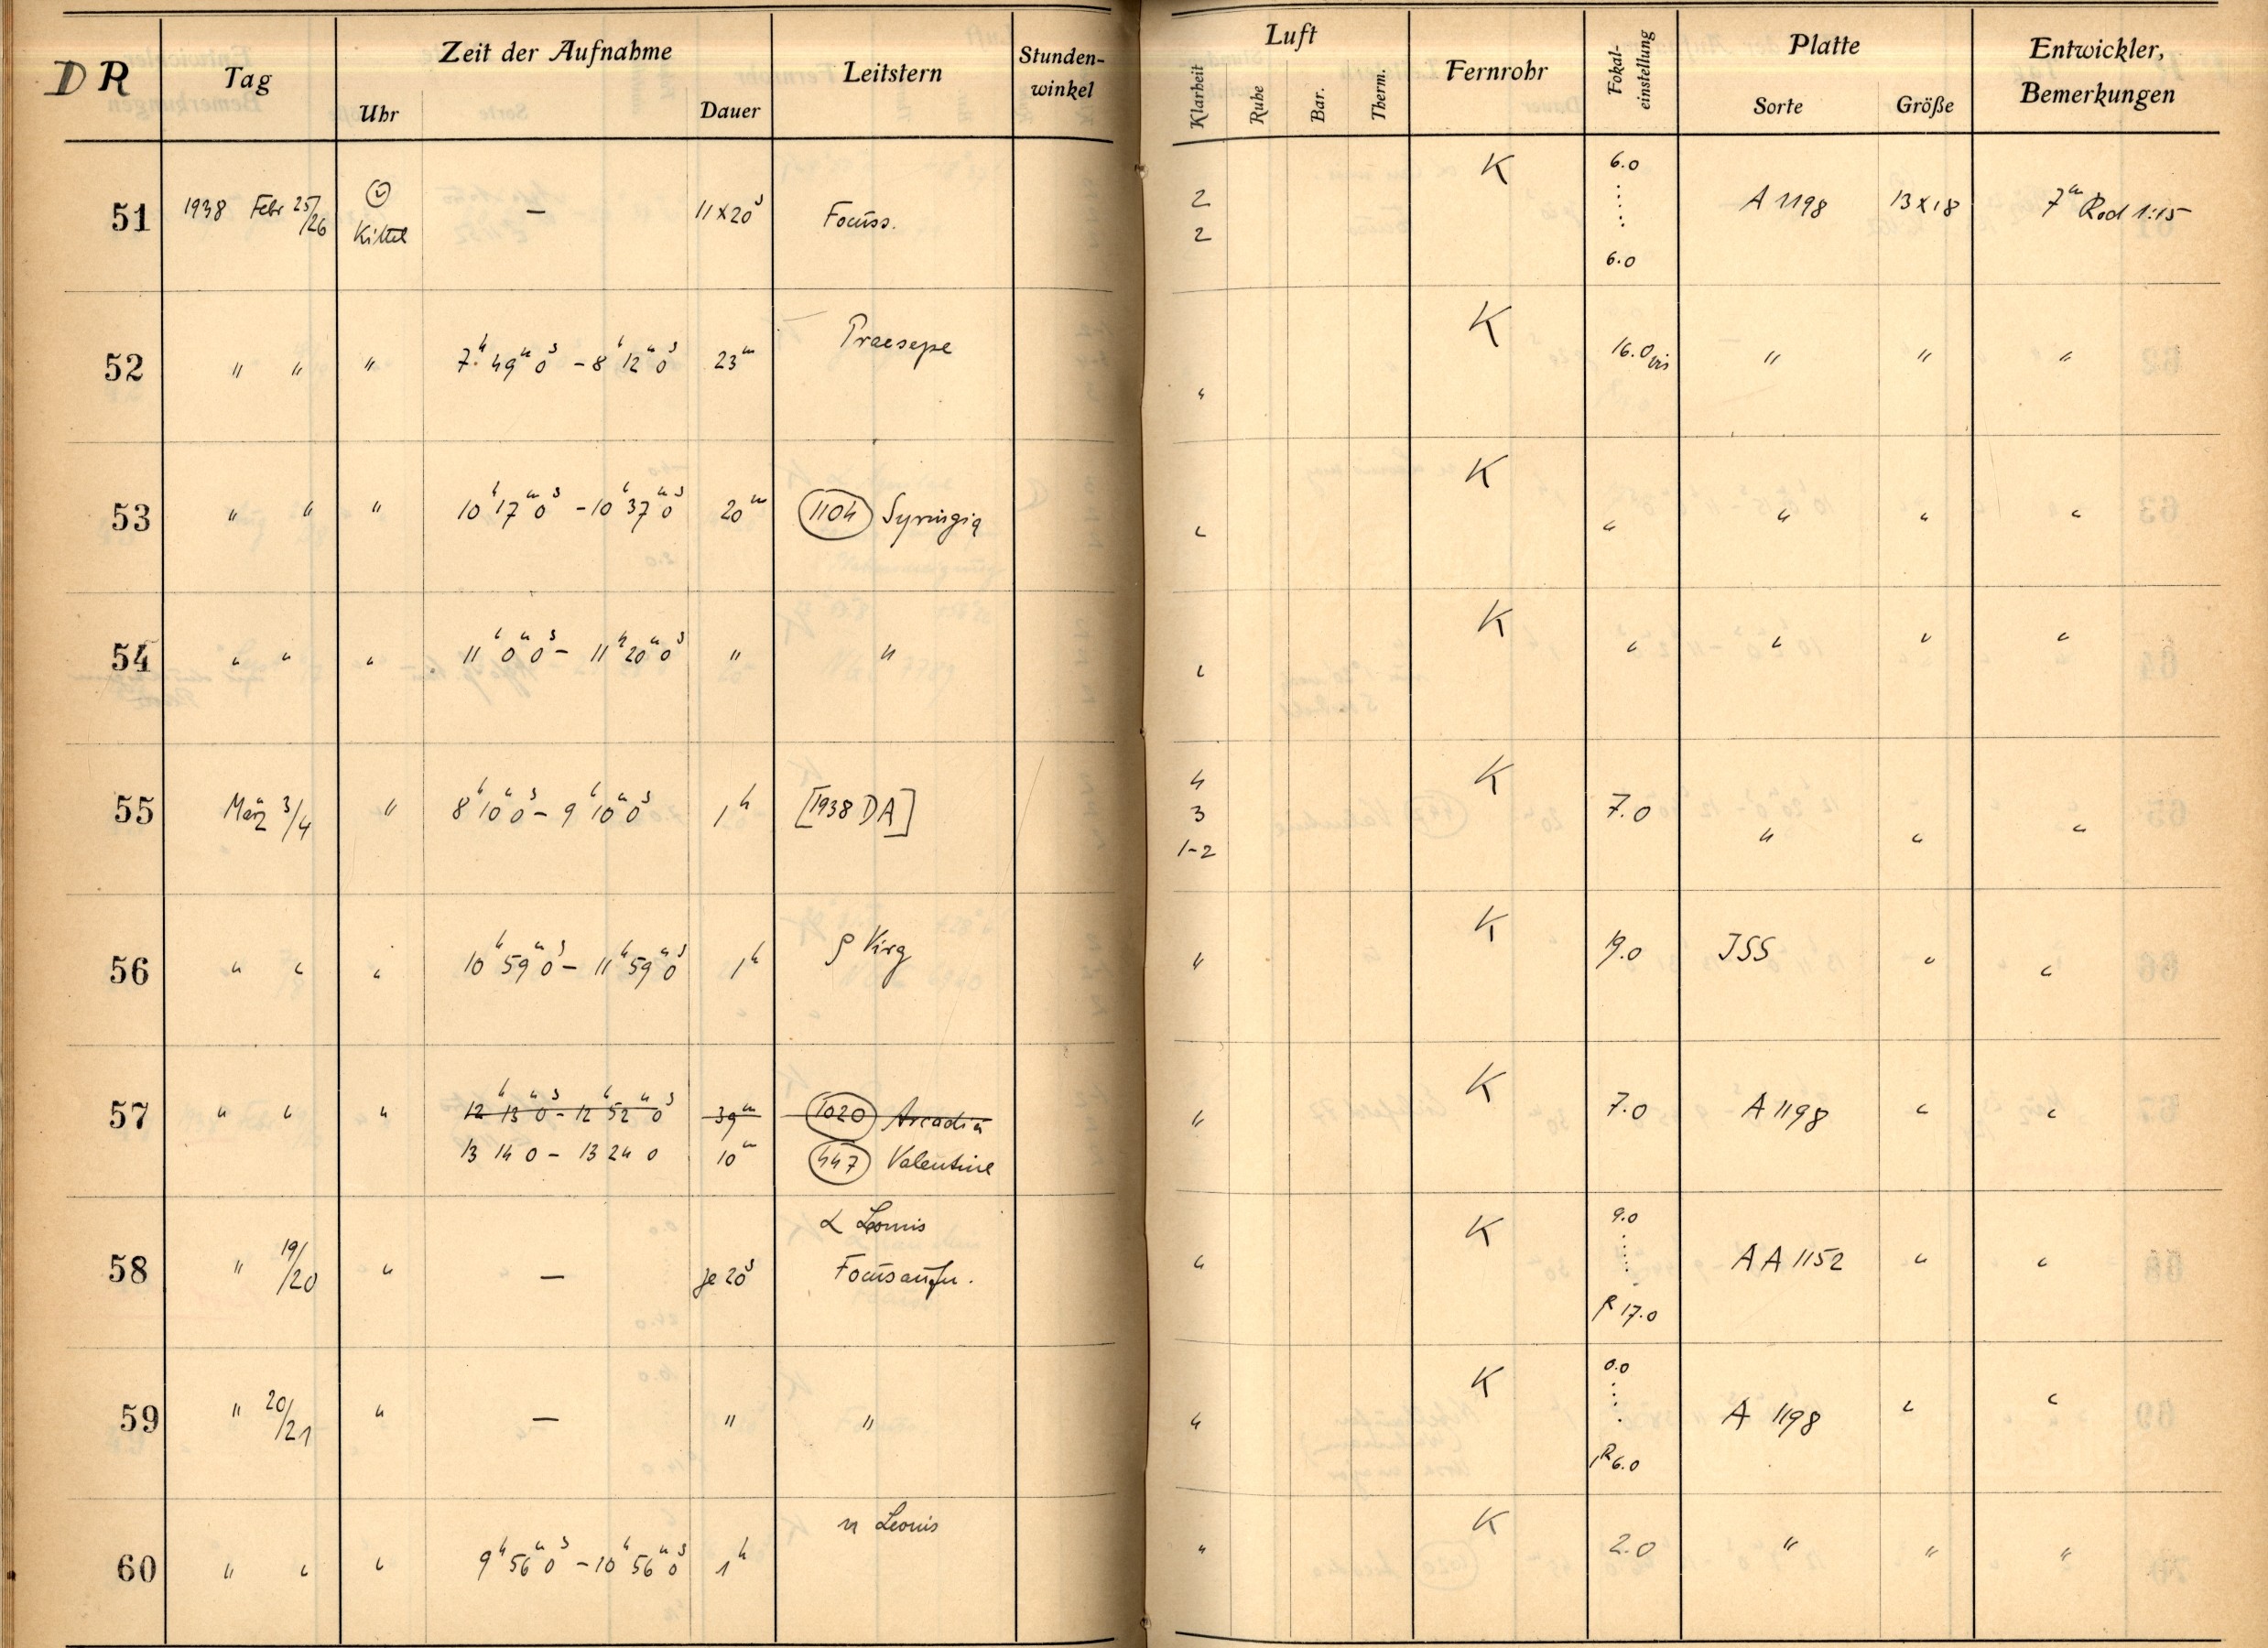 DR Tag Zeit der Aufnahme Leitstern Stunden-winkel Luft Fernrohr Fokal-einstellung Platte Entwickler, Bemerkungen
Uhr Dauer Klarheit Ruhe Bar. Therm. Sorte Größe
51 1938 Febr 25/26 Kittel — 11x20s Focuss. 2 2 K 6.0 6.0 A 1198 13x18 7m Rod 1:15
52 " " " 7h 49m 0s - 8h 12m 0s 23m Praesepe " K 16.0 vis " " "
53 " " " 10h 17m 0s - 10h 37m 0s 20m (1104) Syringia " K " " " "
54 " " " 11h 0m 0s - 11h 20m 0s " " " K " " " "
55 März 3/4 " 8h 10m 0s - 9h 10m 0s 1h [1938 DA] 4 3 1-2 K 7.0 " " "
56 " " " 10h 59m 0s - 11h 59m 0s 1h ρ Virg " K 19.0 JSS " "
57 " " " 12h 13m 0s - 12h 52m 0s 39m (1020) Arcadia " K 7.0 A 1198 " "
13 14 0 - 13 24 0 10m (447) Valentine
58 " 19/20 " — je 20s α Leonis Focusaufn. " K 9.0 17.0 AA 1152 " "
59 " 20/21 " — " " " K 0.0 6.0 A 1198 " "
60 " " " 9h 56m 0s - 10h 56m 0s 1h η Leonis " K 2.0 " " "